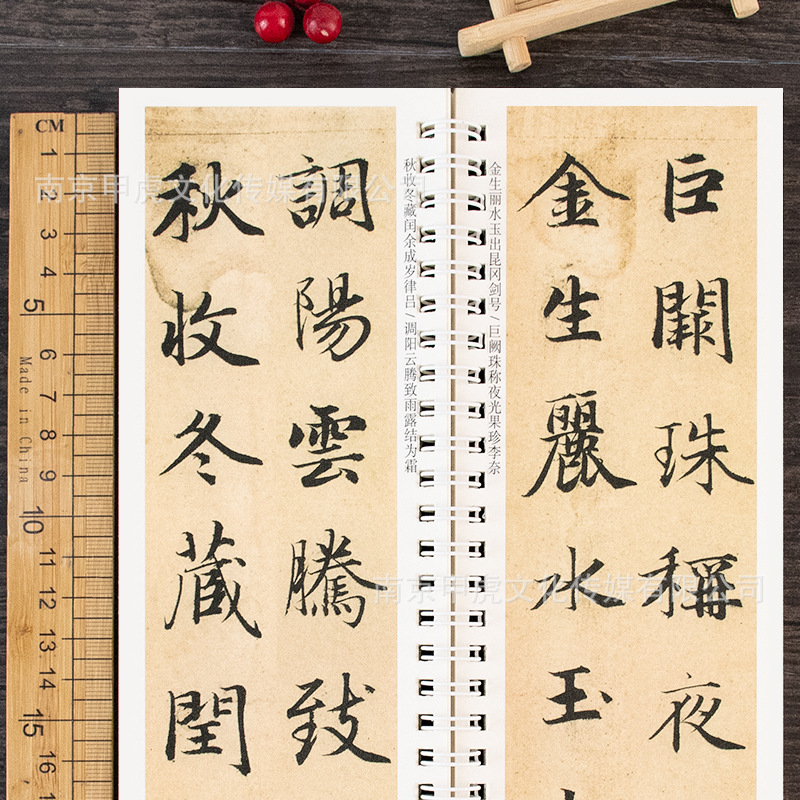 CM
1
2
3
4
5
6
7
8
9
10
11
12
13
14
15
16
Made in China
秋收冬藏閏
調陽雲騰致
秋收冬藏闰余成岁律吕/调阳云腾致雨露结为霜
金生丽水玉出昆冈剑号/巨阙珠称夜光果珍李奈
金生麗水玉
巨闕珠稱夜
南京甲虎文化传媒有限公司
南京甲虎文化传媒有限公司